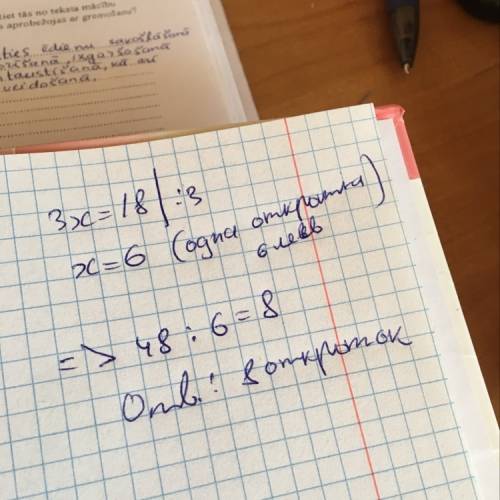 tiet tās no teksta mācību
aprobežojas ar gremošanu?
ties ēdienu sakošļāšanā
izgaršošanā
taustīšanā, kā arī
veidošanā.
3x = 18 | : 3
x = 6 (одна открытка
6 леев)
=> 48 : 6 = 8
Отв.: 8 открыток